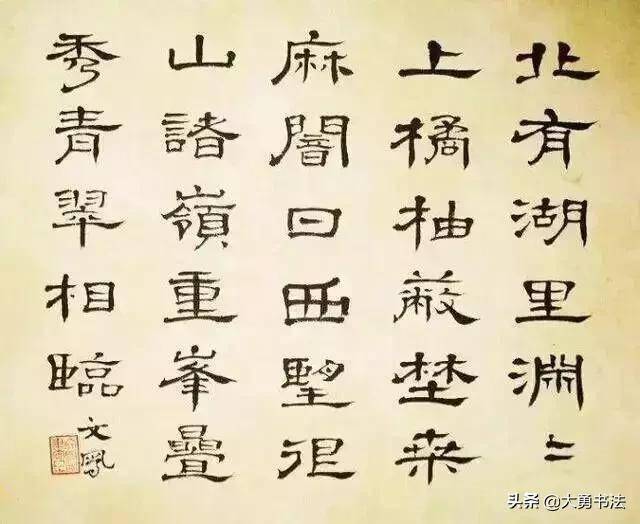 北有湖里淵〻
上橘柚蔽埜桑
麻闇日西望很
山諸嶺重峯疊
秀青翠相臨
文鳳
头条 @大勇书法